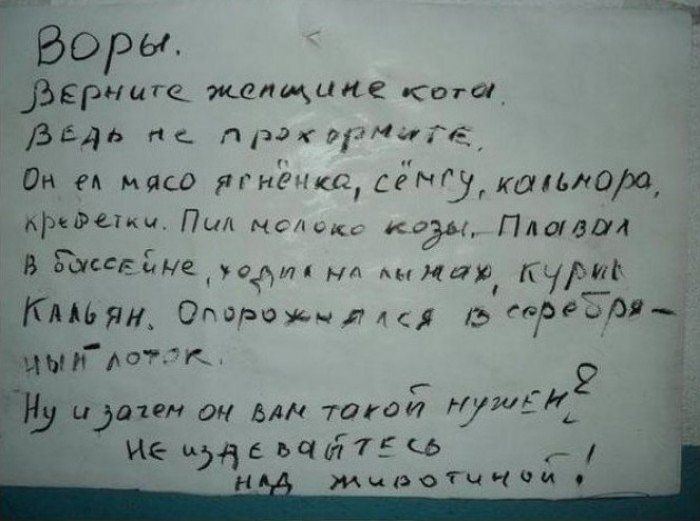 Воры.
Верните женщине кота.
Ведь не прокормите.
Он ел мясо ягнёнка, сёмгу, кальмара,
креветки. Пил молоко козы. Плавал
в бассейне, ходил на лыжах, курил
Кальян. Опорожнялся в серебря-
ный лоток.
Ну и зачем он вам такой нужен?
Не издевайтесь
над животиной!